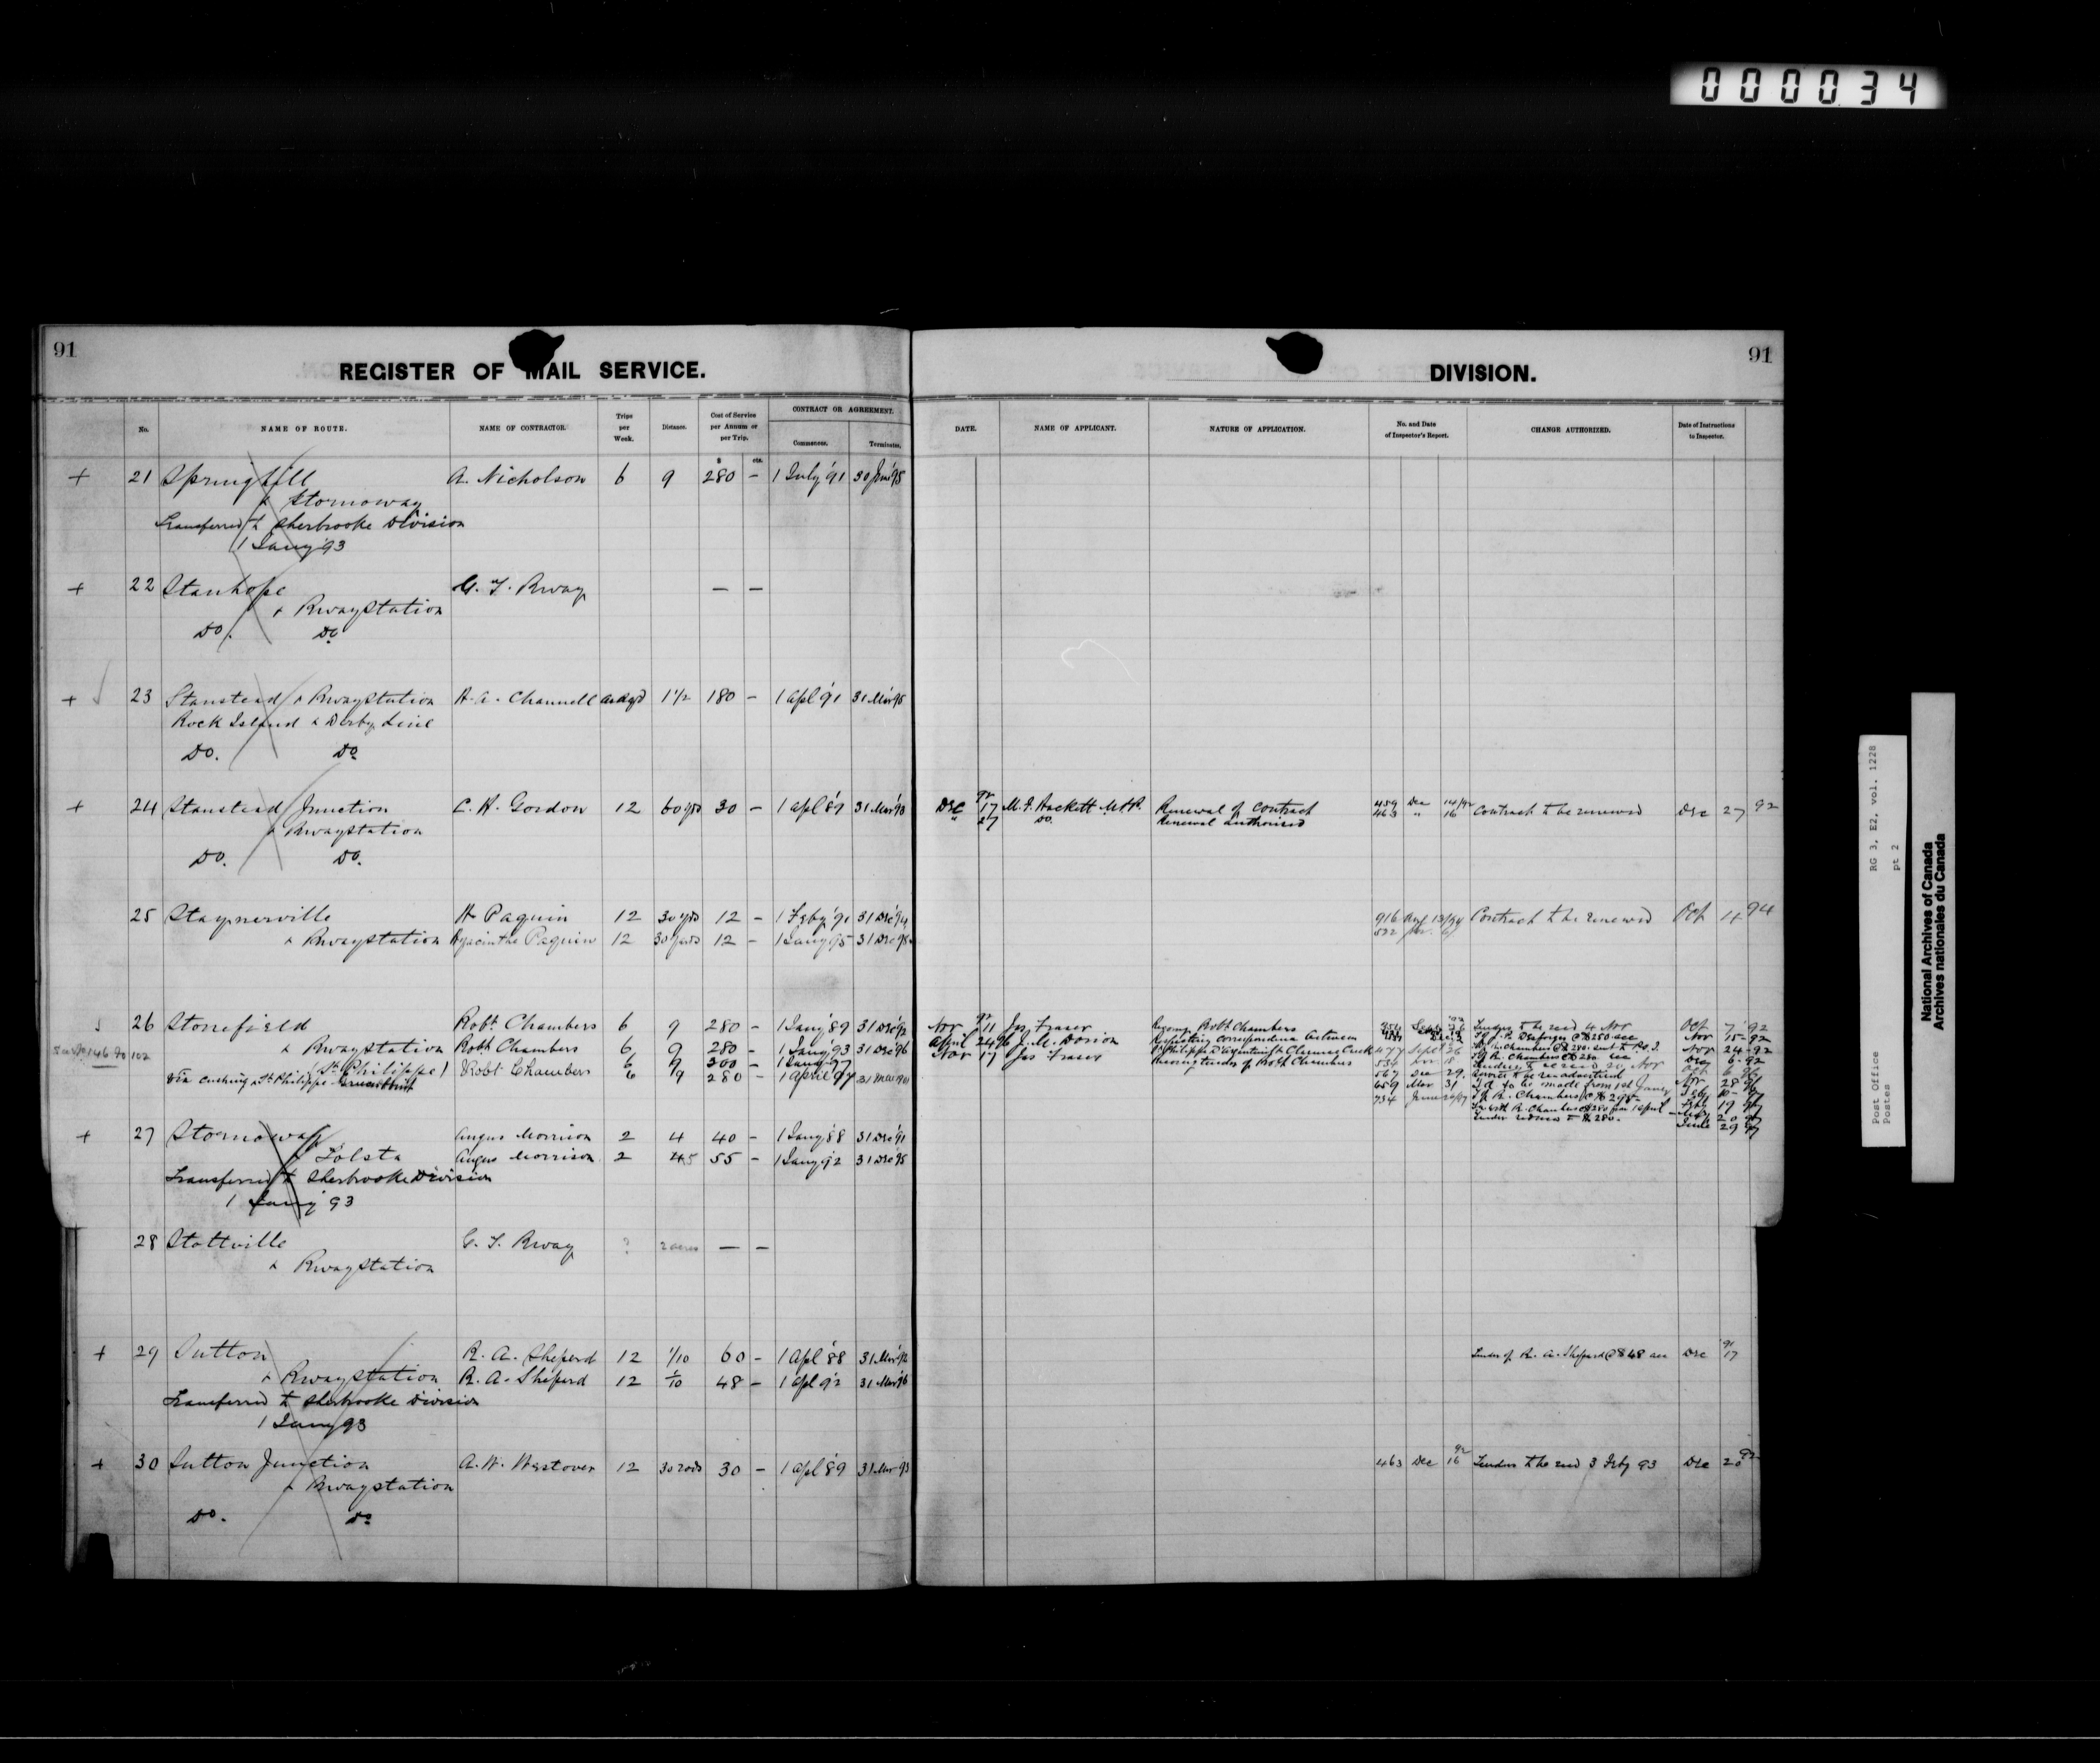 000034
91
REGISTER OF MAIL SERVICE.
No. NAME OF ROUTE. NAME OF CONTRACTOR. Trips per Week. Distance. Cost of Service per Annum or per Trip. CONTRACT OR AGREEMENT. Commences. Terminates.
$ cts.
+ 21 Springhill A. Nicholson 6 9 280 – 1 July '91 30 June '95
& Stornoway
Transferred to Sherbrooke Division
1 Jany '93
+ 22 Stanhope G. T. Rway — —
& Rwaystation
Do. Do
+ 23 Stanstead & Rwaystation H. A. Channell as reqd 1 1/2 180 – 1 Apl '91 31 Mar '95
Rock Island & Derby Line
Do. Do
+ 24 Stanstead Junction C. H. Gordon 12 60 yds 30 – 1 Apl '89 31 Mar '93
& Rwaystation
Do. Do.
25 Staynerville H Paquin 12 30 yds 12 – 1 Feby '91 31 Dec '94
& Rwaystation Hyacinthe Paquin 12 30 yards 12 – 1 Jany 95 31 Dec 98
26 Stonefield Robt. Chambers 6 9 280 – 1 Jany '89 31 Dec '92
& Rwaystation Robt Chambers 6 9 280 – 1 Jany '93 31 Dec '96
(St Philippe) 6 9 300 – 1 Jany '97
Via Cushing & St Philippe Robt Chambers 6 9 280 – 1 April 97
+ 27 Stornoway Angus Morrison 2 4 40 – 1 Jany '88 31 Dec '91
& Tolsta Angus Morrison 2 45 55 – 1 Jany '92 31 Dec '95
Transferred to Sherbrooke Division
1 Jany '93
28 Stottville G. T. Rway ? 2 acres — —
& Rwaystation
+ 29 Sutton R. A. Sheperd 12 1/10 60 – 1 Apl '88 31 Mar '92
& Rwaystation R. A. Sheperd 12 1/10 48 – 1 Apl 92 31 Mar '96
Transferred to Sherbrooke Division
1 Jany 93
+ 30 Sutton Junction A. W. Westover 12 30 rods 30 – 1 Apl '89 31 Mar '93
& Rwaystation
Do. Do
91
DIVISION.
DATE. NAME OF APPLICANT. NATURE OF APPLICATION. No. and Date of Inspector's Report. CHANGE AUTHORIZED. Date of Instructions to Inspector.
Dec 92 17 M. F. Hackett M.P.P. Renewal of Contract 459 Dec 14/92 Contract to be renewed Dec 27 92
" 27 Do. Renewal authorised 463 " 16
916 13/94 Contract to be renewed Oct 4 94
Nov 11 Jas Fraser Robt Chambers Tenders to be recd 4 Nov Oct 7 '92
April 24 J. M. Dorion correspondence between Nov 15 - 92
Nov 17 Jas Fraser tender of Robt Chambers 477 Sept 26 Nov 24 - 92
567 Dec 29
659 Mar 31 to be made from 1st Jany
734 June R. Chambers
Tender reduced to $280. June 29 97
Tender of R. A. Sheperd @ $48 acc Dec 91 17
463 Dec 92 16 Tenders to be recd 3 Feby 93 Dec 20 92
RG 3, E2, vol. 1228
pt 2
Post Office
Postes
National Archives of Canada
Archives nationales du Canada